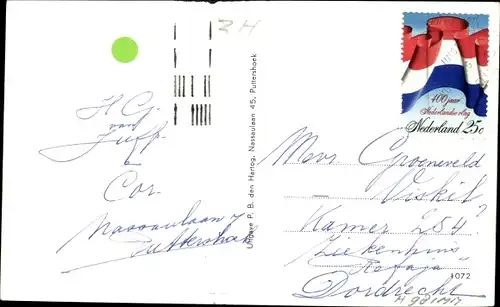 2 H
H G.
van
Juff.
&
Cor.
Nassaulaan 7
Puttershoek
Uitgave P. B. den Hertog, Nassaulaan 45, Puttershoek
400 jaar
Nederlandse vlag
Nederland 25c
Mevr Groeneveld
Viskil
Kamer 254
Ziekenhuis
"Refaja"
Dordrecht
1072